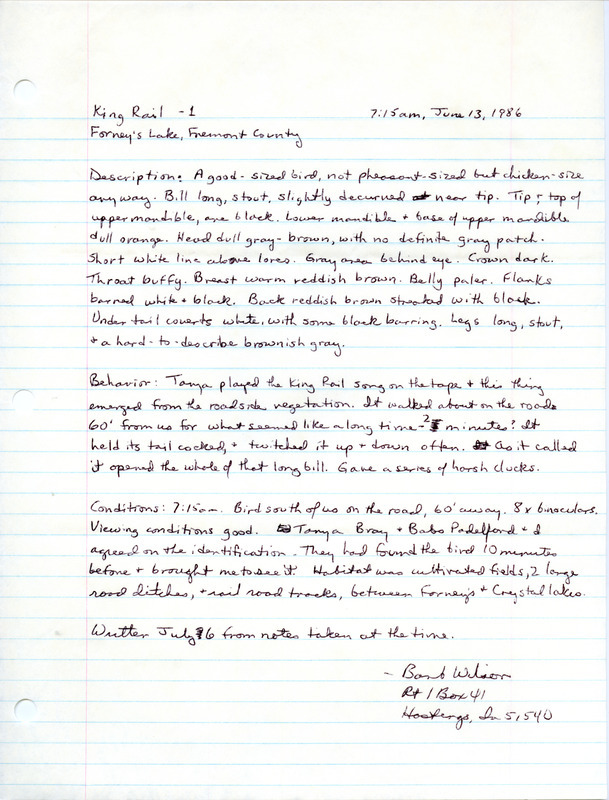 King Rail - 1 7:15am, June 13, 1986
Forney's Lake, Fremont County
Description: A good-sized bird, not pheasant-sized but chicken-size
anyway. Bill long, stout, slightly decurved near tip. Tip + top of
upper mandible, are black. Lower mandible + base of upper mandible
dull orange. Head dull gray-brown, with no definite gray patch.
Short white line above lores. Gray area behind eye. Crown dark.
Throat buffy. Breast warm reddish brown. Belly paler. Flanks
barred white + black. Back reddish brown streaked with black.
Under tail coverts white, with some black barring. Legs long, stout,
+ a hard-to-describe brownish gray.
Behavior: Tanya played the King Rail song on the tape + this thing
emerged from the roadside vegetation. It walked about on the road
60' from us for what seemed like a long time - 2 minutes? It
held its tail cocked, + twitched it up + down often. As it called
it opened the whole of that long bill. Gave a series of harsh clucks.
Conditions: 7:15am. Bird south of us on the road, 60' away. 8x binoculars.
Viewing conditions good. Tanya Bray + Babs Padelford + I
agreed on the identification. They had found the bird 10 minutes
before + brought me to see it. Habitat was cultivated fields, 2 large
road ditches, + rail road tracks, between Forney's + Crystal lakes.
Written July 6 from notes taken at the time.
- Barb Wilson
Rt 1 Box 41
Hastings, Ia 51540